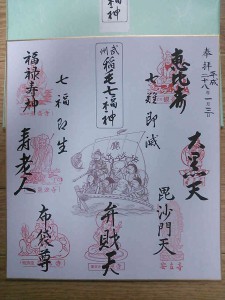 福神
参拝 平成二十八年一月三日
恵比寿
大黒天
毘沙門天
七難即滅
武州
稲毛七福神
弁財天
七福即生
布袋尊
福禄寿神
寿老人
安養寺